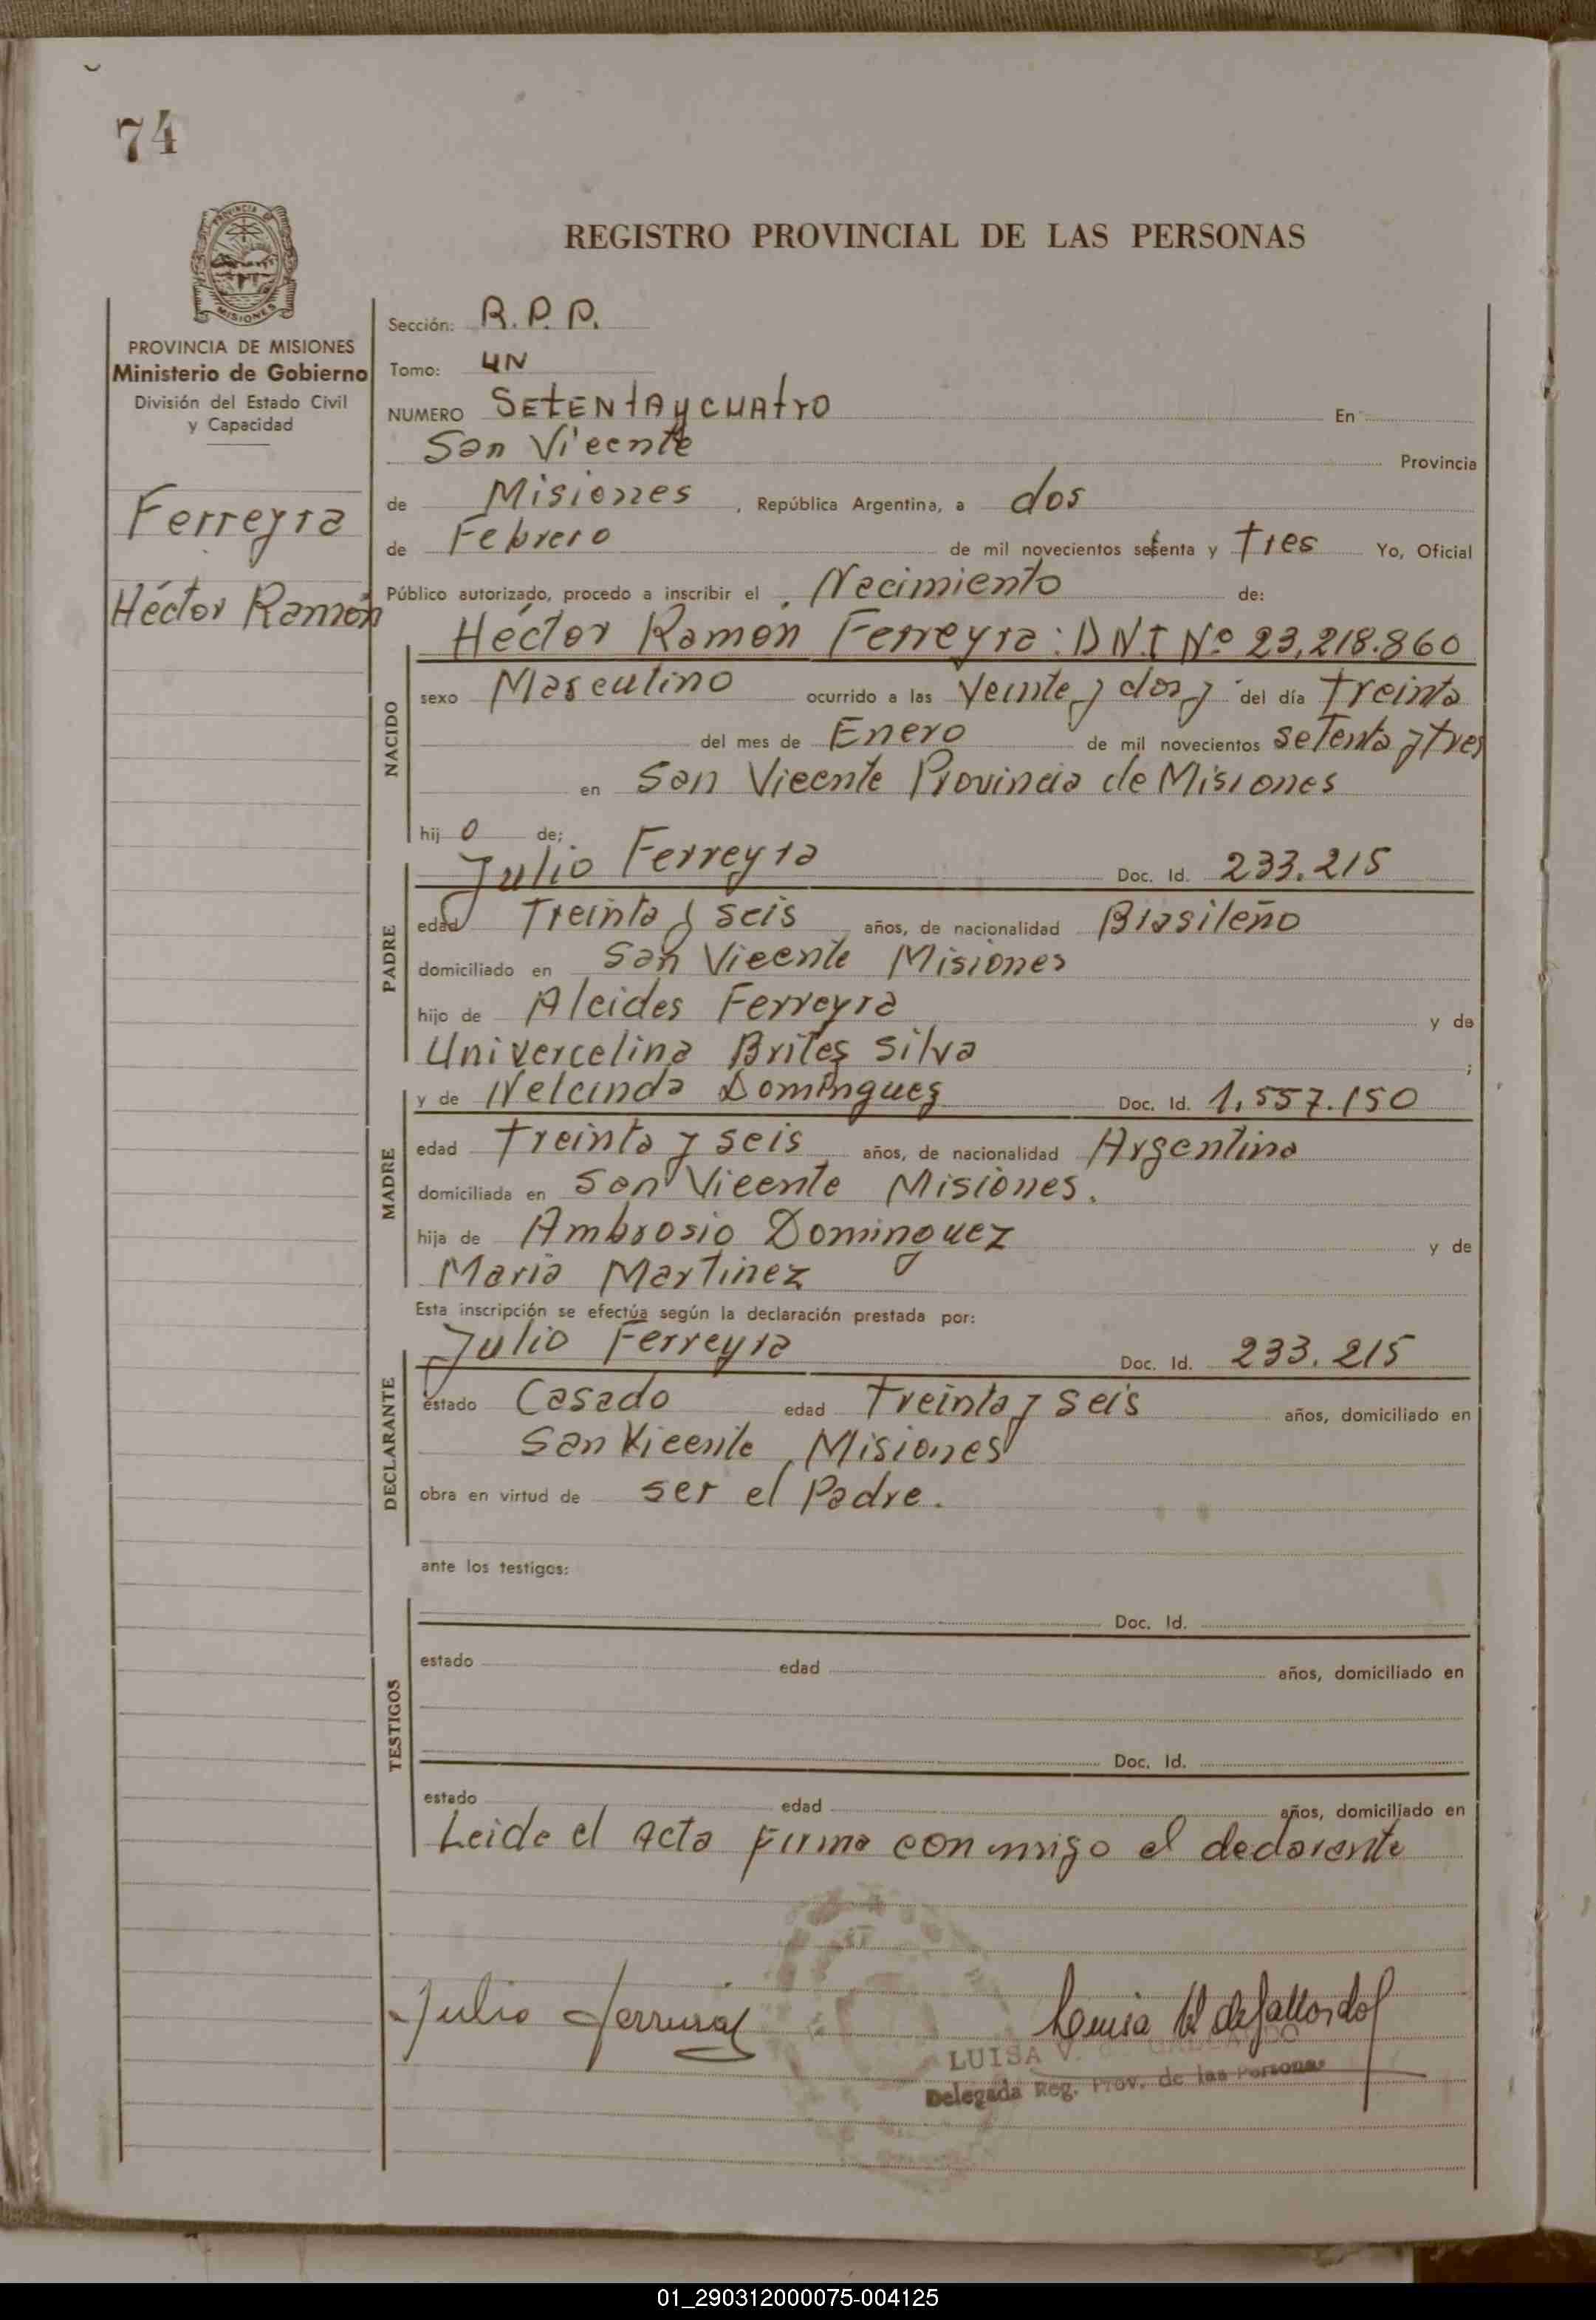 74
PROVINCIA DE
MISIONES
REGISTRO PROVINCIAL DE LAS PERSONAS
PROVINCIA DE MISIONES
Ministerio de Gobierno
División del Estado Civil
y Capacidad
Ferreyra
Héctor Ramón
Sección: R.P.P.
Tomo: UN
NUMERO SETENTA y CUATRO En
San Vicente Provincia
de Misiones, República Argentina, a dos
de Febrero de mil novecientos setenta y Tres Yo, Oficial
Público autorizado, procedo a inscribir el Nacimiento de:
Héctor Ramón Ferreyra: DN.I Nº 23,218.860
NACIDO
sexo Masculino ocurrido a las Veinte y dos y del día Treinta
del mes de Enero de mil novecientos seTenta y tres
en San Vicente Provincia de Misiones
hij o de;
Julio Ferreyra Doc. Id. 233.215
PADRE
edad Treinta y seis años, de nacionalidad Brasileño
domiciliado en San Vicente Misiones
hijo de Alcides Ferreyra y de
Univercelina Brites Silva ;
y de Nelcinda Dominguez Doc. Id. 1,557.150
MADRE
edad Treinta y seis años, de nacionalidad Argentina
domiciliada en San Vicente Misiones.
hija de Ambrosio Dominguez y de
Maria Martinez
Esta inscripción se efectúa según la declaración prestada por:
Julio Ferreyra Doc. Id. 233.215
DECLARANTE
estado Casado edad Treinta y seis años, domiciliado en
San Vicente Misiones
obra en virtud de ser el Padre.
ante los testigos:
Doc. Id.
TESTIGOS
estado edad años, domiciliado en
Doc. Id.
estado edad años, domiciliado en
Leida el acta Firma conmigo el declarante
Julio
Luisa V de Gallardo
LUISA V. de GALLARDO
Delegada Reg. Prov. de las Personas
01_290312000075-004125